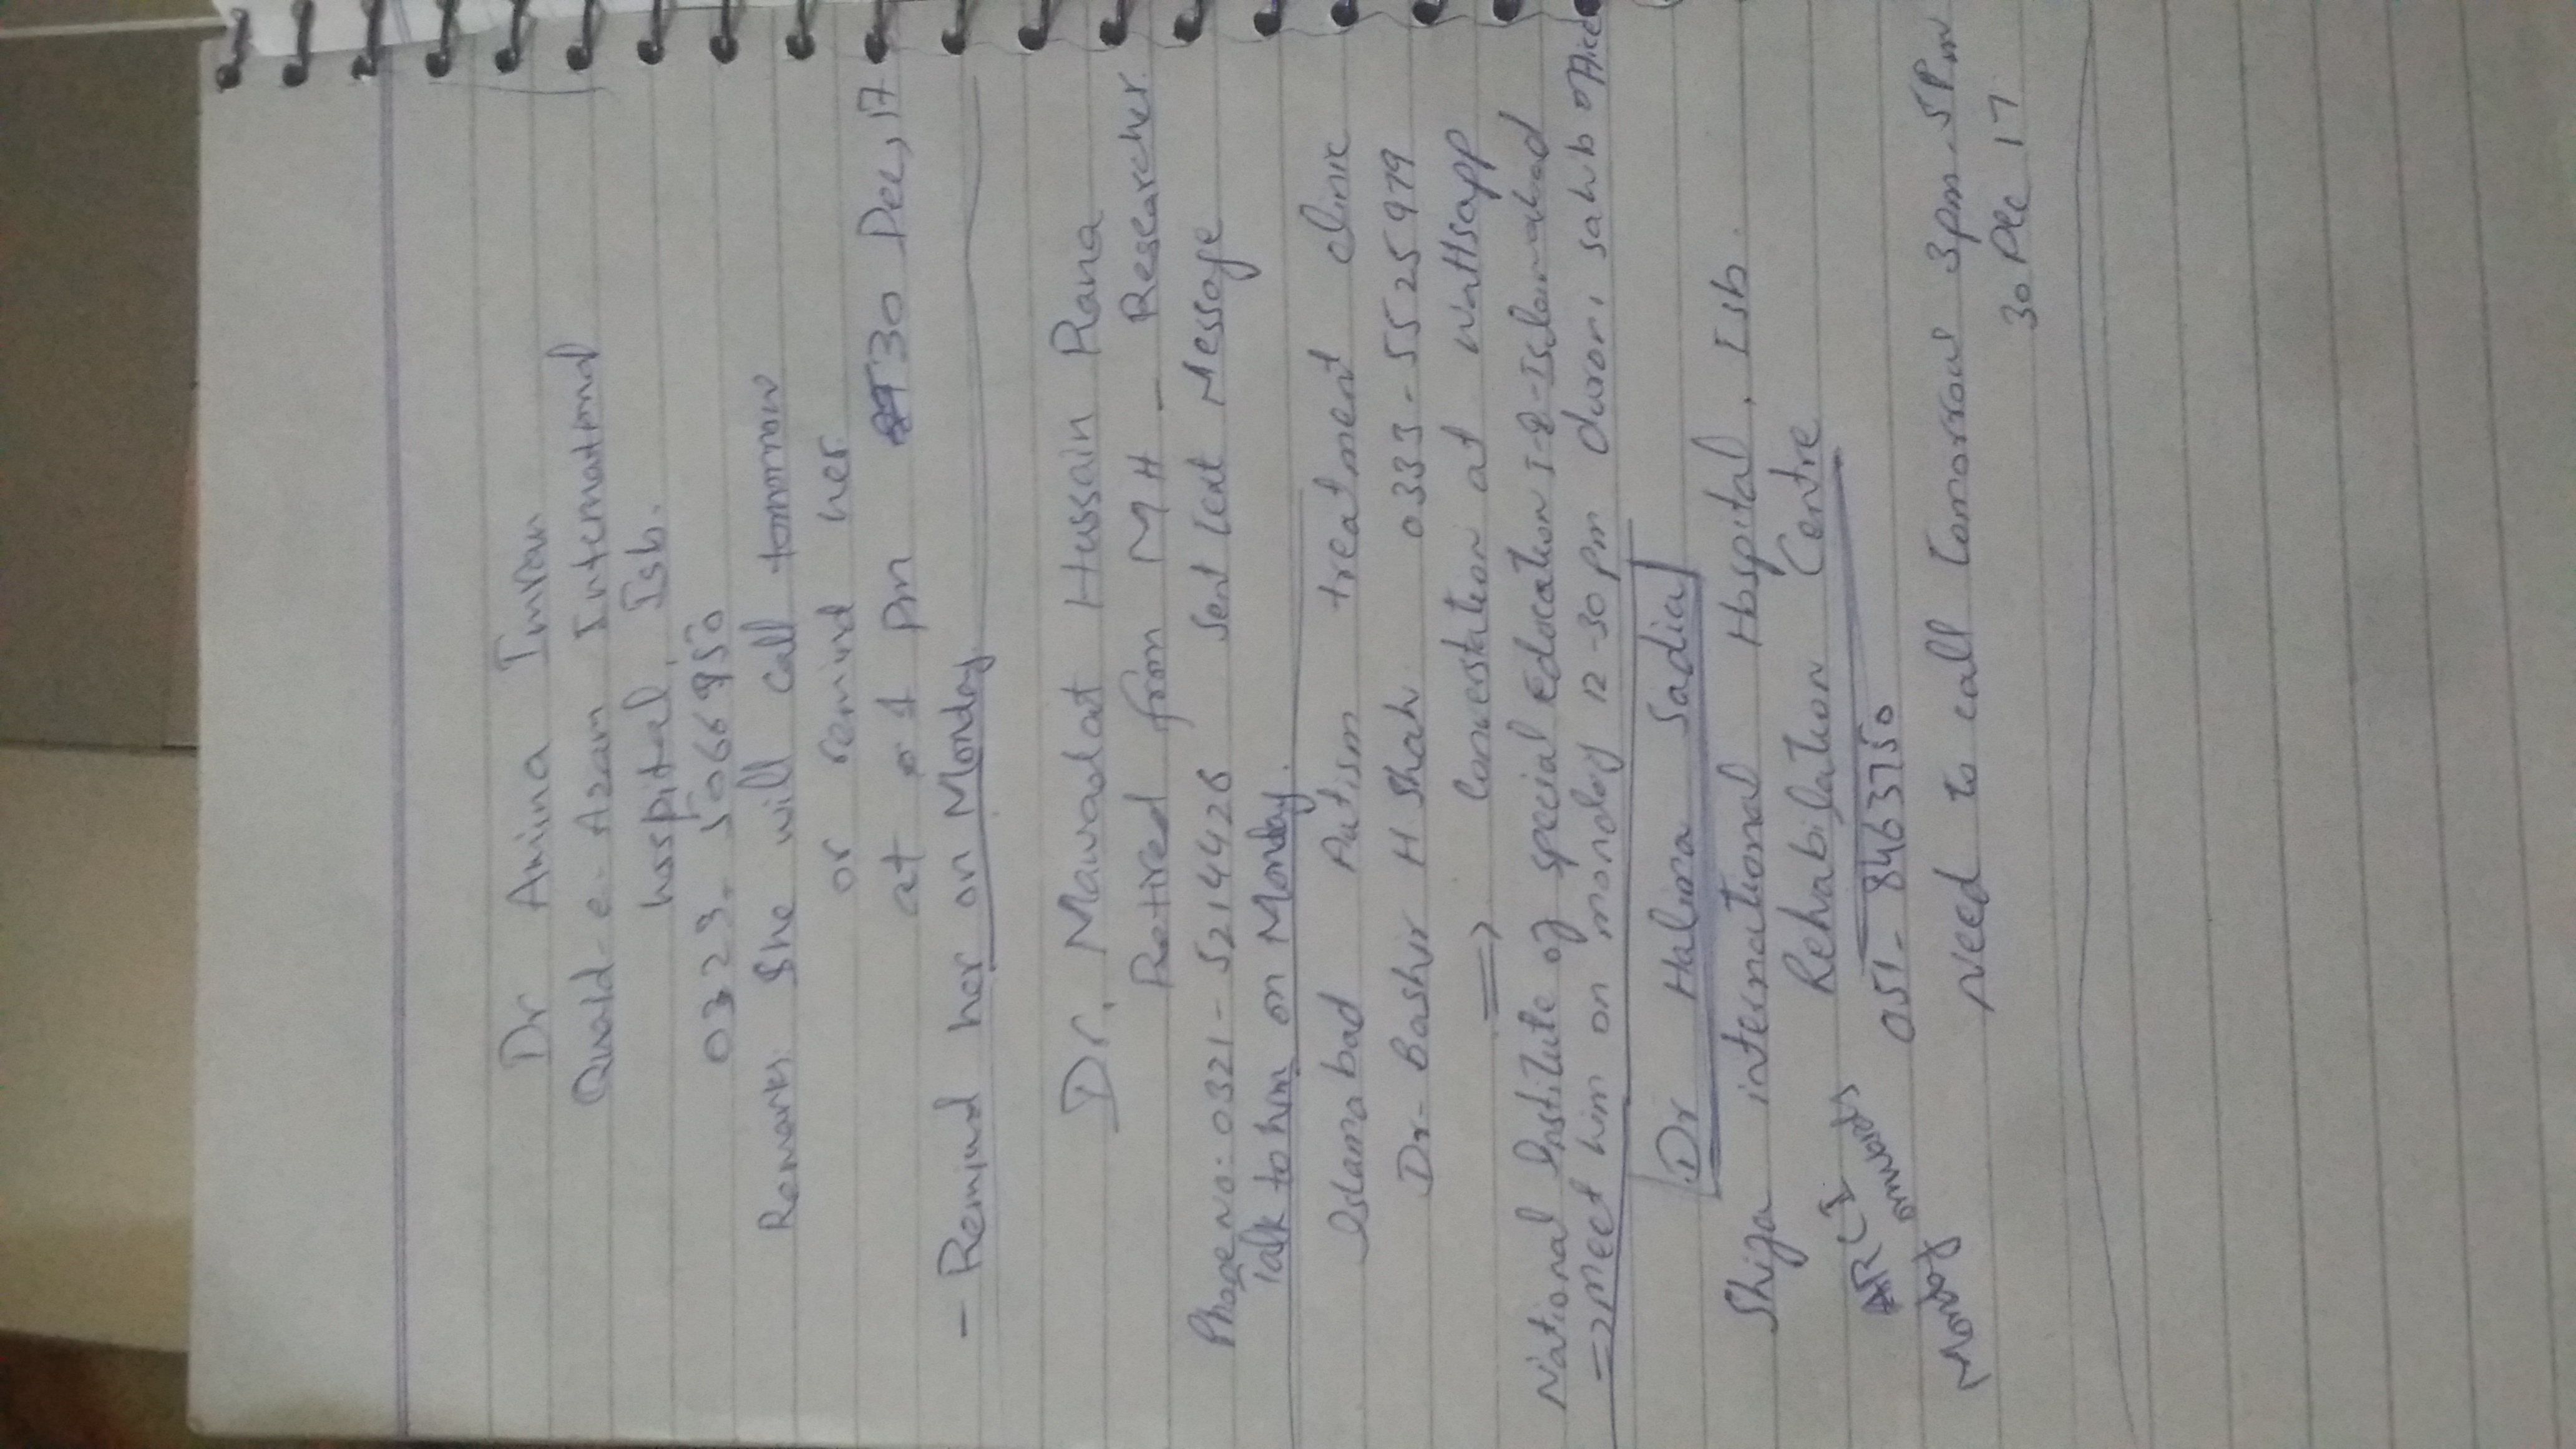 Dr Amina Imran
Quaid-e-Azam International
hospital, Isb.
0323-5066950
Remarks: She will call tommorow
or remind her
at 1 pm 30 Dec, 17
- Remind her on Monday
Dr. Mawadat Hussain Rana
Retired from MH - Researcher
Phone No: 0321-5214426 Sent text Message
Talk to him on Monday.
Islamabad Autism treatment clinic
Dr- Bashir H Shah 0333-5525979
=> Conversation at WattSapp
National Institute of special Education I-8-Islamabad
=> Meet him on monday 12-30 pm durani sahib office
Dr Halima Sadia
Shifa international Hospital, Isb.
Rehabilation Centre
051-8463750
Monday onwards
Need to call tomorrow 3pm-5pm
30 Dec 17